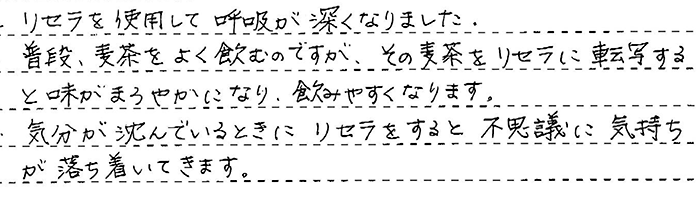 ・リセラを使用して呼吸が深くなりました.
普段、麦茶をよく飲むのですが、その麦茶をリセラに転写する
と味がまろやかになり、飲みやすくなります。
・気分が沈んでいるときにリセラをすると不思議に気持ち
が落ち着いてきます。